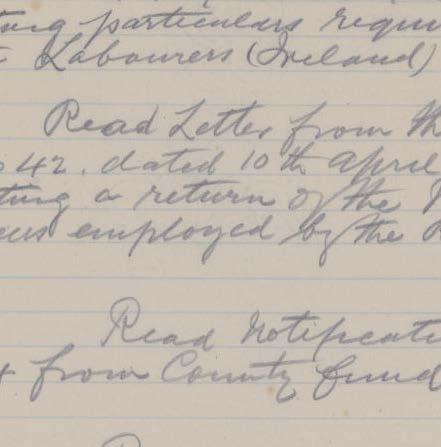 particulars requi
Labourers (Ireland)
Read Letter from th
42. dated 10th April
ting a return of the
employed by the
Read Notificati
from County Fund